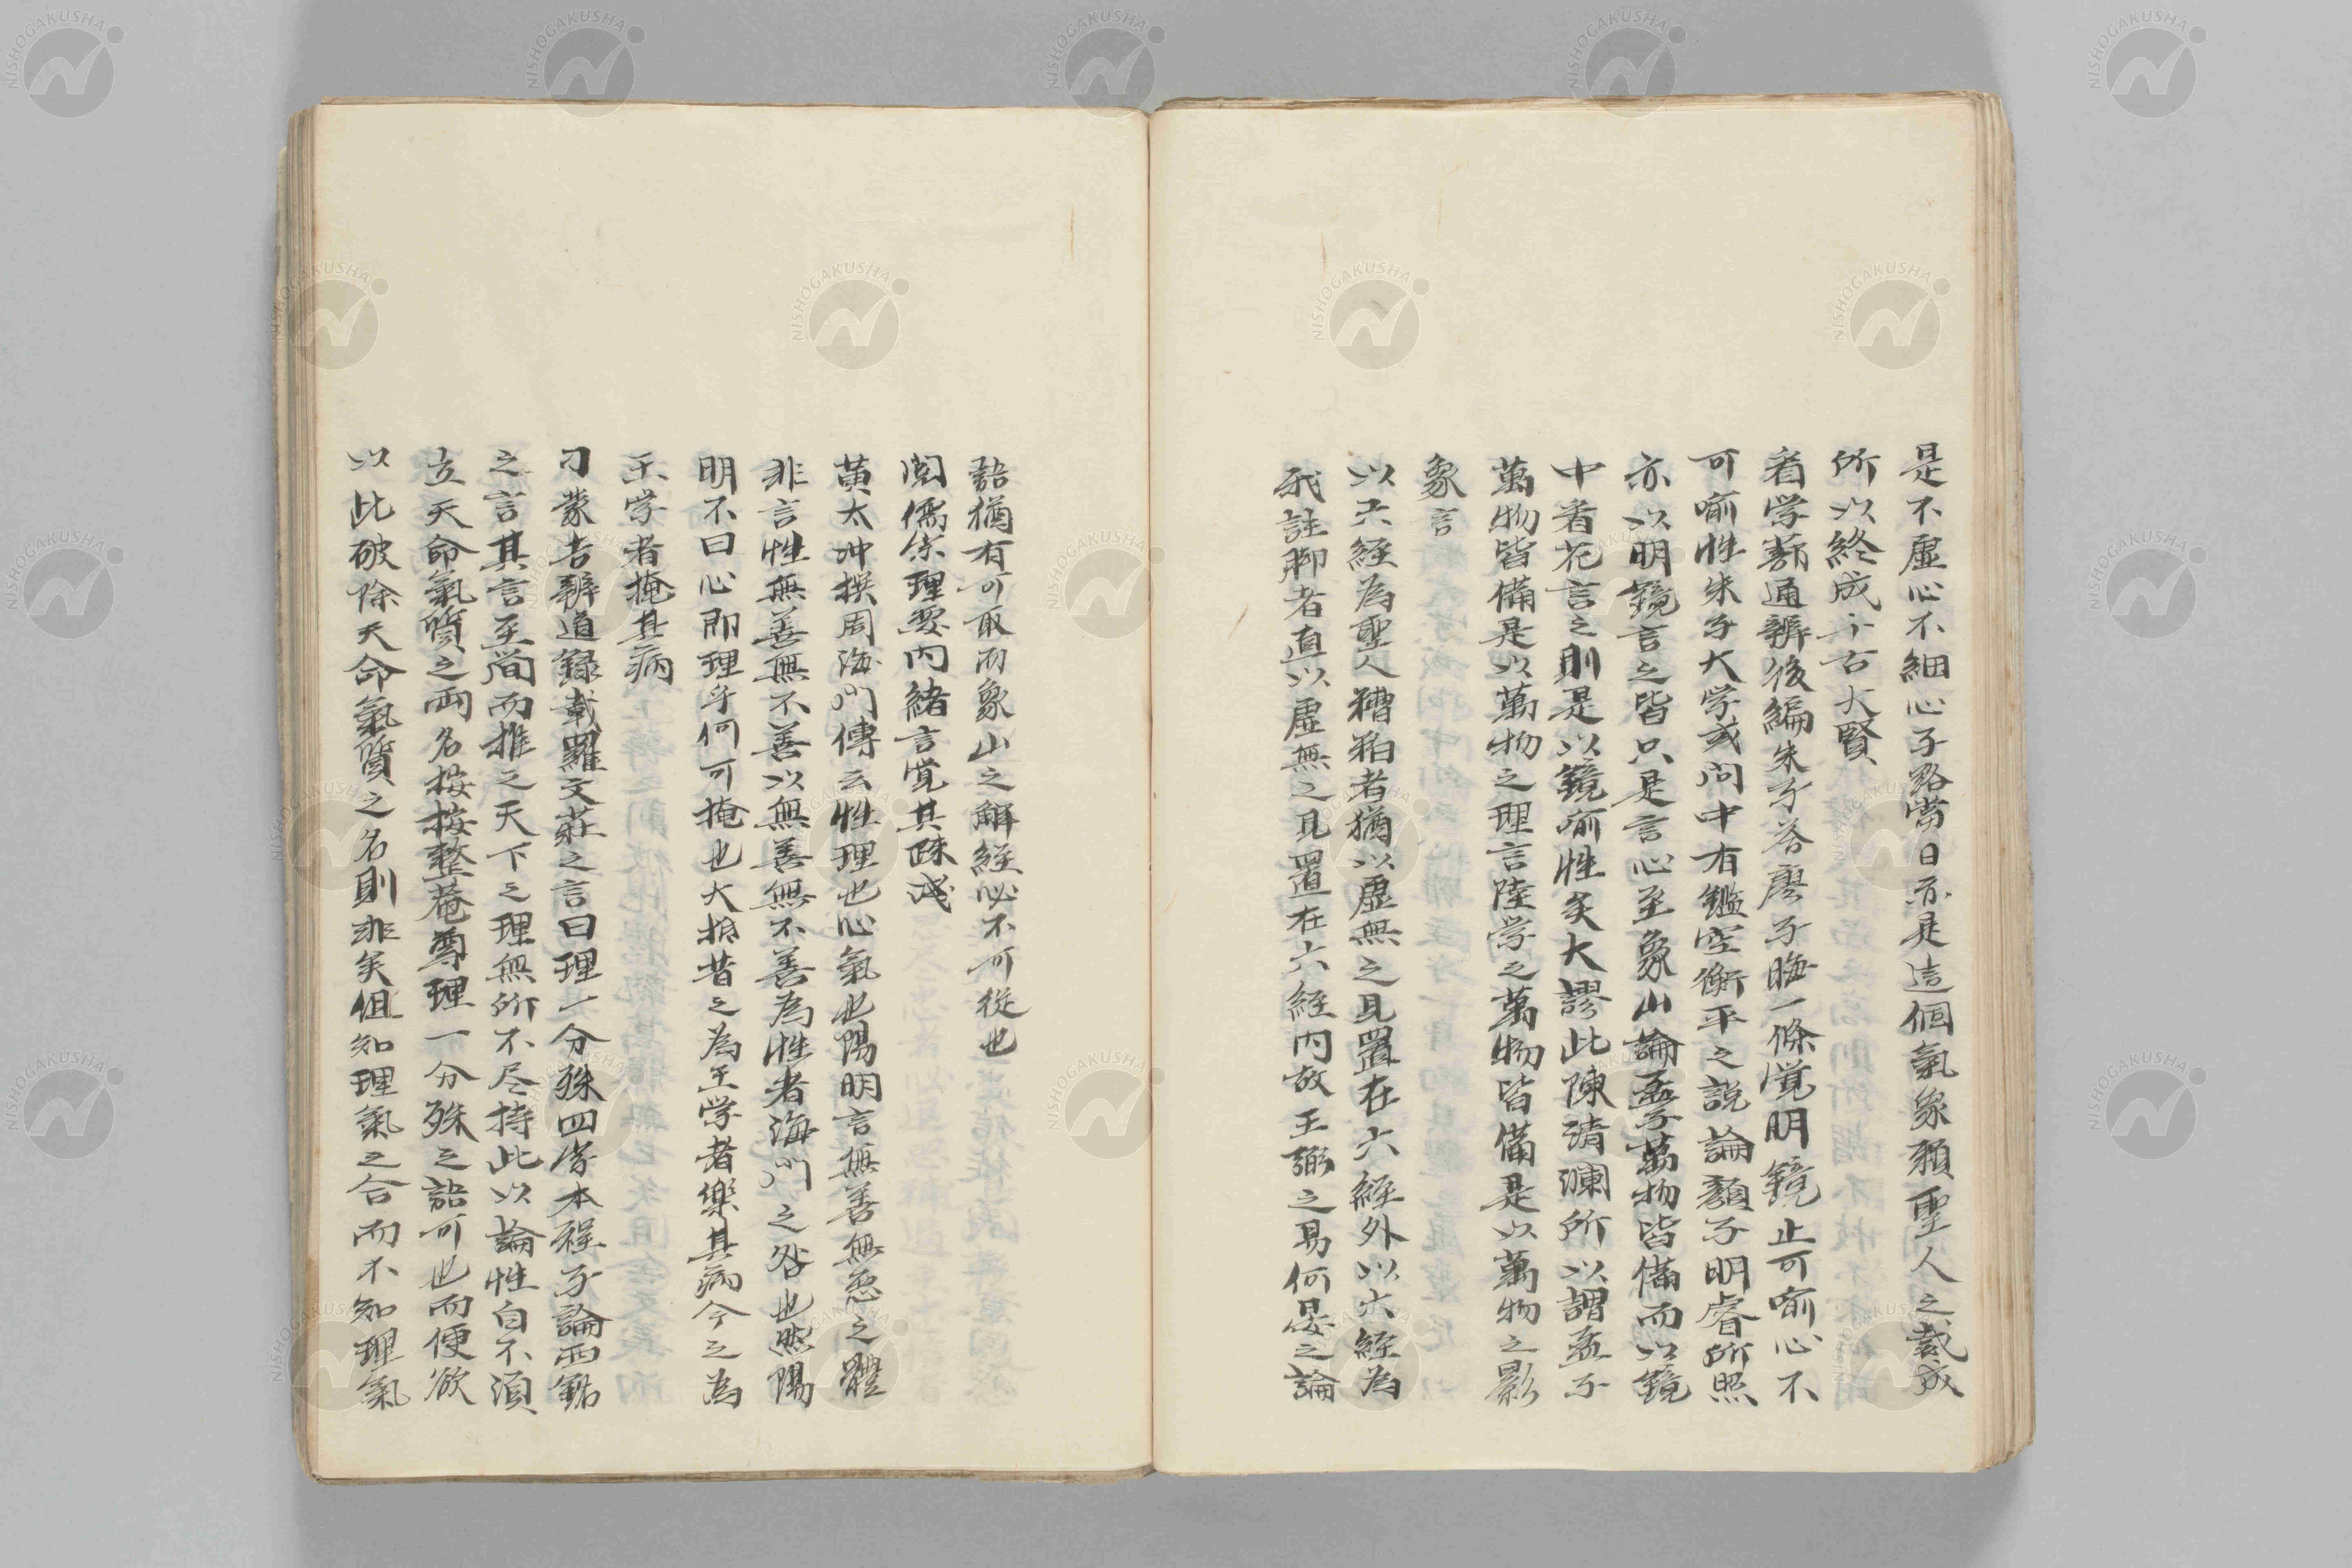 是不虛心不細心子路當日亦是這個氣象賴聖人之裁成
所以終成千古大賢
看学蔀通辨後編朱子答廖子晦一條覚明鏡止可喻心不
可喻性朱子大学或问中有鑑空衡平之説論顏子明睿所照
亦以明鏡言之皆只是言心至象山論孟子萬物皆備而以鏡
中看花言之則是以鏡喻性矣大謬此陳清瀾所以謂孟子
萬物皆備是以萬物之理言陸学之萬物皆備是以萬物之影
象言
以六経為聖人糟粕者猶以虛無之見置在六経外以六経為
我註脚者直以虛無之見置在六経内故王弼之易何晏之論
語猶有可取而象山之解経必不可從也
閲儒宗理要内緒言覚其疎淺
黄太冲撰周海门傳云性理也心氣也陽明言無善無惡之體
非言性無善無不善以無善無不善為性者海门之咎也然陽
明不曰心即理乎何可掩也大抵昔之為王学者樂其病今之為
王学者掩其病
刁蒙吉辨道録載羅文莊之言曰理一分殊四字本程子論西銘
之言其言至简而推之天下之理無所不尽持此以論性自不湏
立天命氣質之両名按按整菴尊理一分殊之語可也而便欲
以此破除天命氣質之名則非矣但知理氣之合而不知理氣